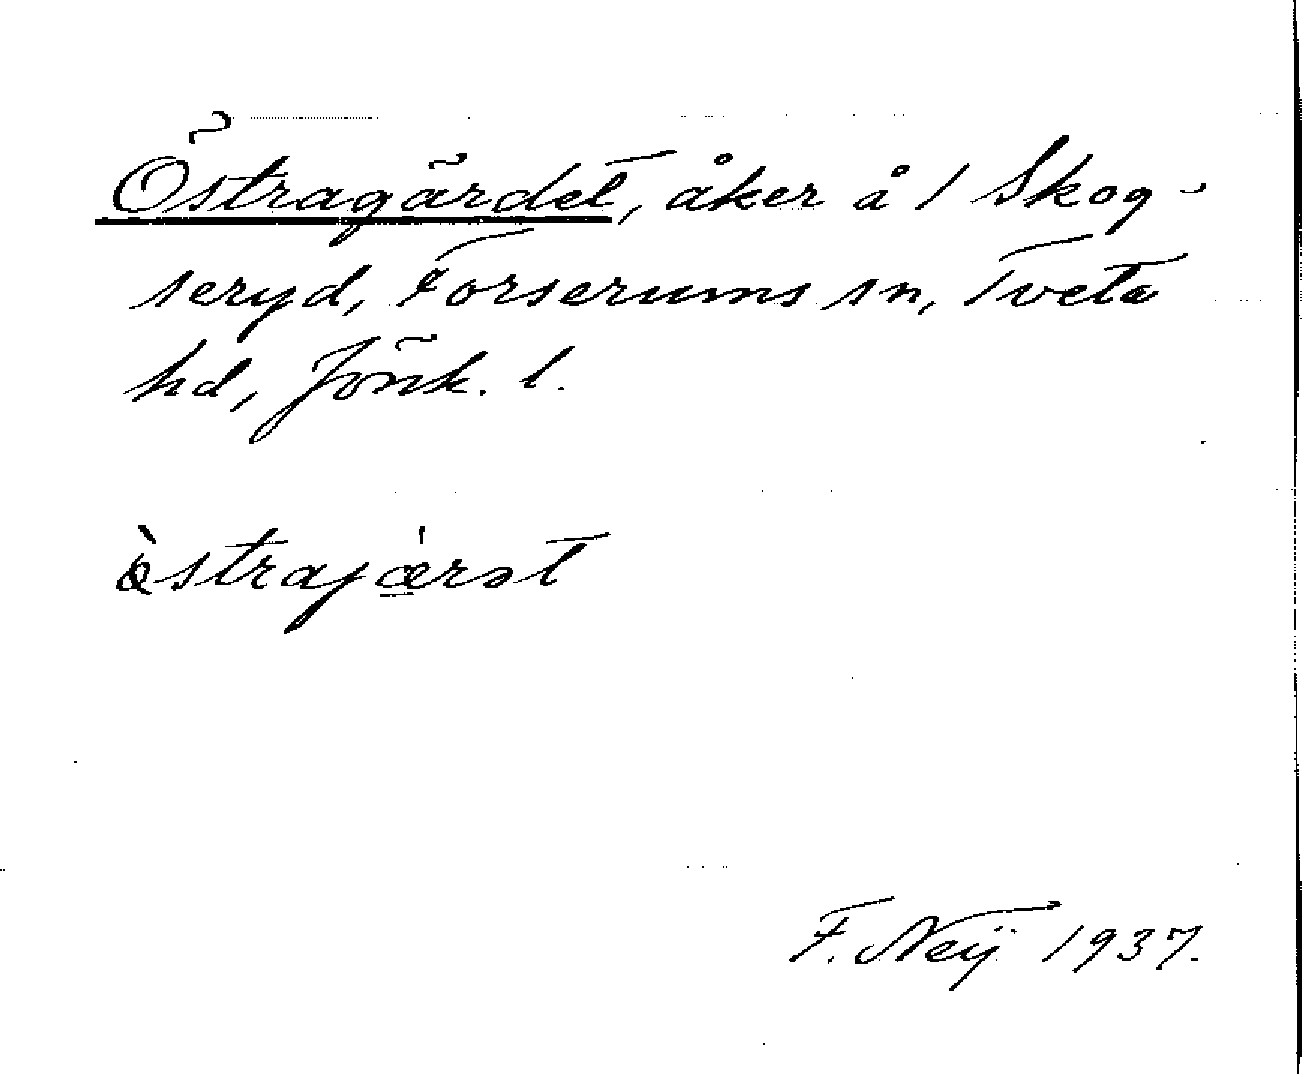 Östragärdet, åker å 1 Skog-
seryd, Forserums sn, Tveta
hd, Jönk. l.
ö̀strajǽ̱rət
F. Neij 1937.